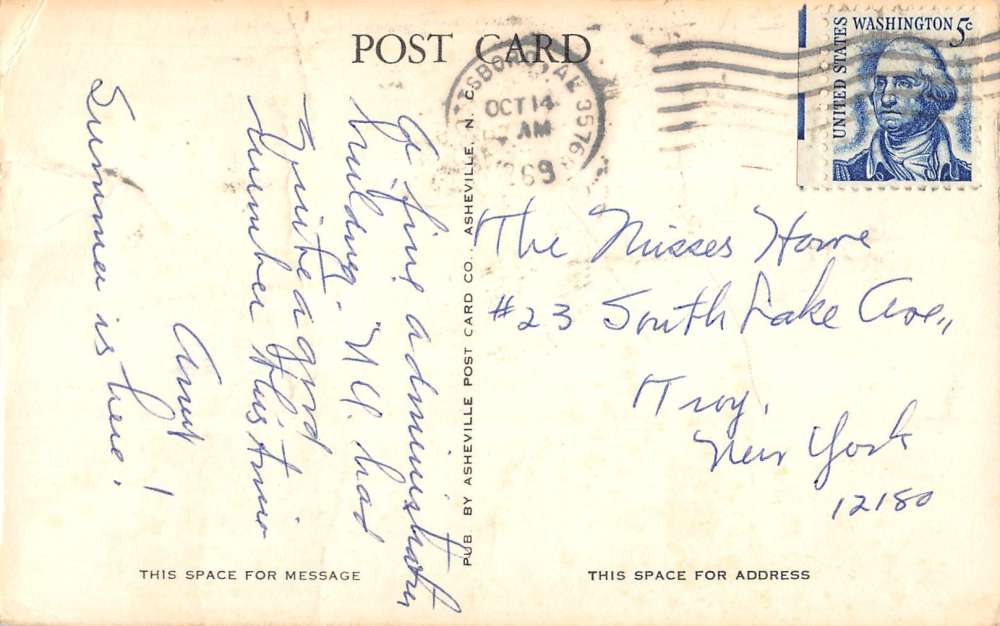 POST CARD
OCT 14
AM
1969
UNITED STATES
WASHINGTON 5c
A fine administrative
building. N.C. had
quite a good
number this time
Aunt
Summer is here!
PUB. BY ASHEVILLE POST CARD CO., ASHEVILLE, N. C.
The Misses Howe
#23 South Lake Ave.,
Troy,
New York
12180
THIS SPACE FOR MESSAGE
THIS SPACE FOR ADDRESS